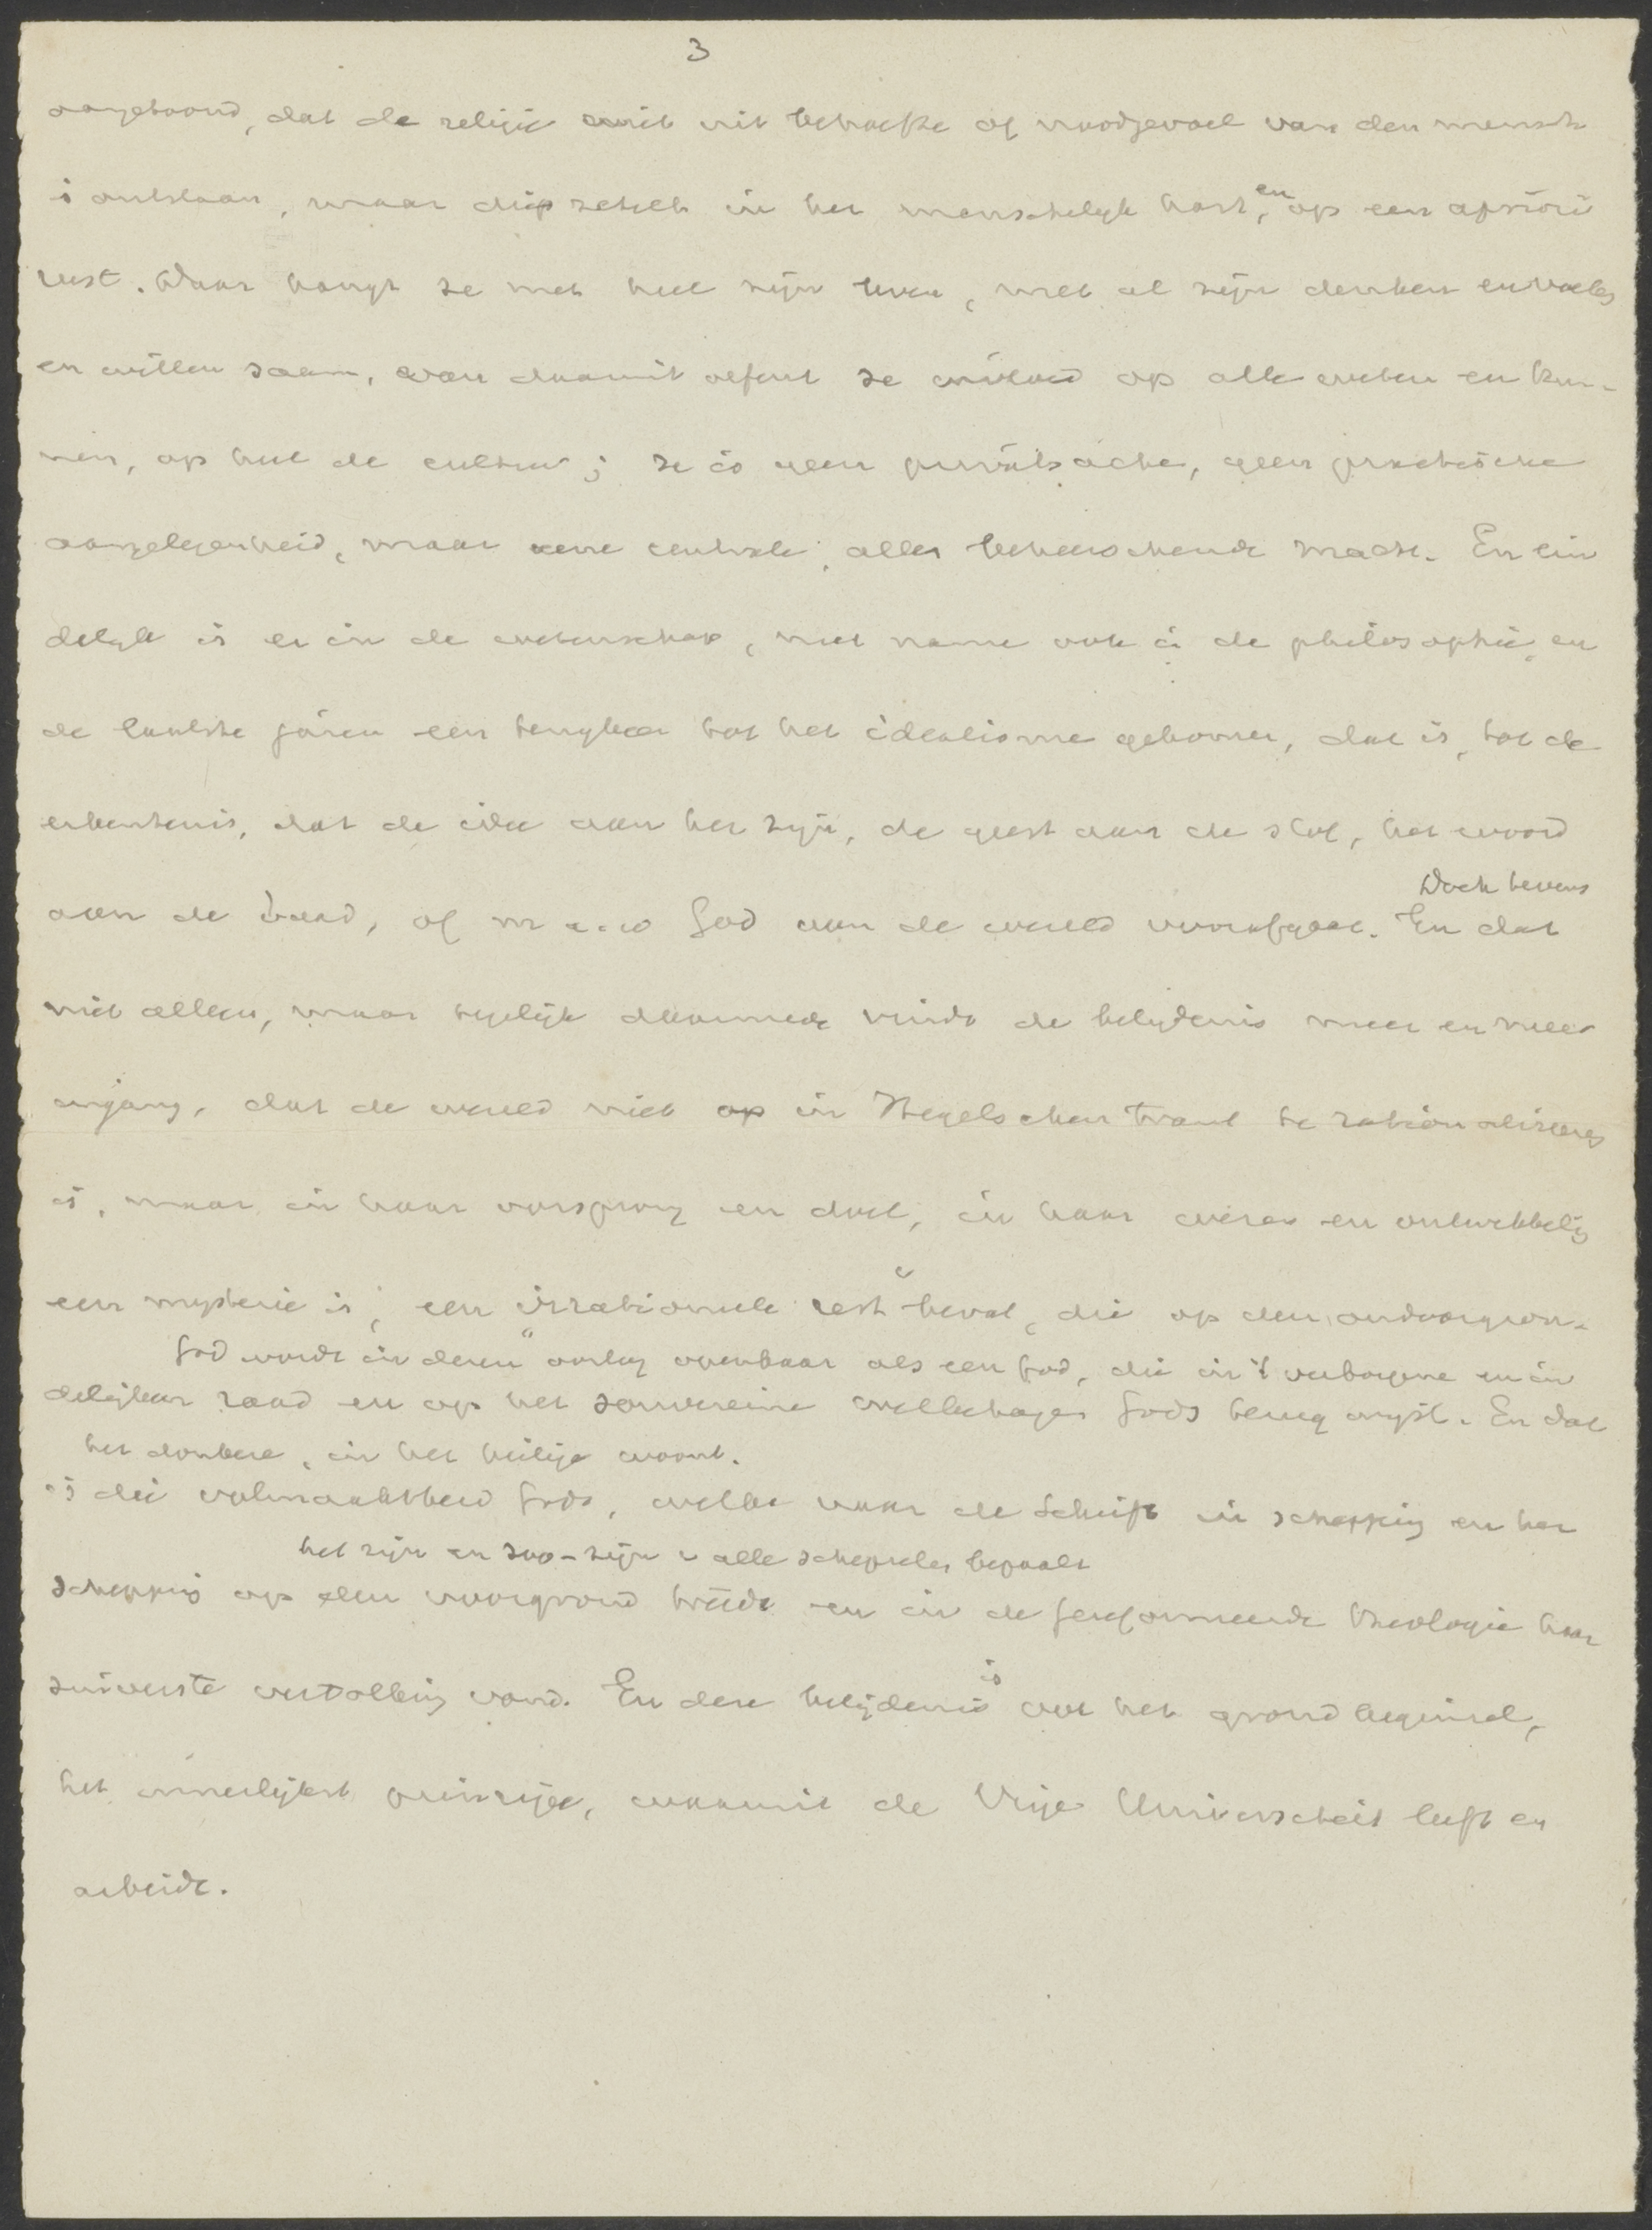 3
aangetoond, dat de religie niet uit behoefte of noodgevoel van den mensch
is ontstaan, maar diep zetelt in het menschelijk hart, en op een apriori
rust. Daar hangt ze met heel zijn leven, met al zijn denken en voelen
en willen saam, van daaruit oefent ze invloed op alle weten en kun-
nen, op heel de cultuur; ze is geen privatsache, geen practische
aangelegenheid, maar eene centrale, alles beheerschende macht. En ein
delijk is er in de wetenschap, met name ook in de philosophie, en
de laatste jaren een terugkeer tot het idealisme gekomen, dat is, tot de
erkentenis, dat de idee aan het zijn, de geest aan de stof, het woord
Doch tevens
aan de daad, of m.a.w God aan de wereld voorafgaat. En dat
niet alleen, maar tegelijk daarmede vindt de belijdenis meer en meer
ingang, dat de wereld niet op in Hegelschen trant te rationaliseeren
is, maar in haar oorsprong en doel, in haar wezen en ontwikkeling
een mysterie is, een irrationeele rest bevat, die op den ondoorgron-
God wordt in deren oorlog openbaar als een God, die in 't verborgene en in
delijken raad en op het souvereine welbehagen Gods terug wijst. En dat
het donkere, in het heilige woont.
is die volmaaktheid Gods, welke naar de Schrift in schepping en her
het zijn en zoo-zijn v alle schepselen bepaalt
schepping op den voorgrond treedt en in de Gereformeerde theologie haar
zuiverste vertolking vond. En deze belijdenis is ook het grondbeginsel,
het innerlijkst principe, waaruit de Vrije Universiteit leeft en
arbeidt.